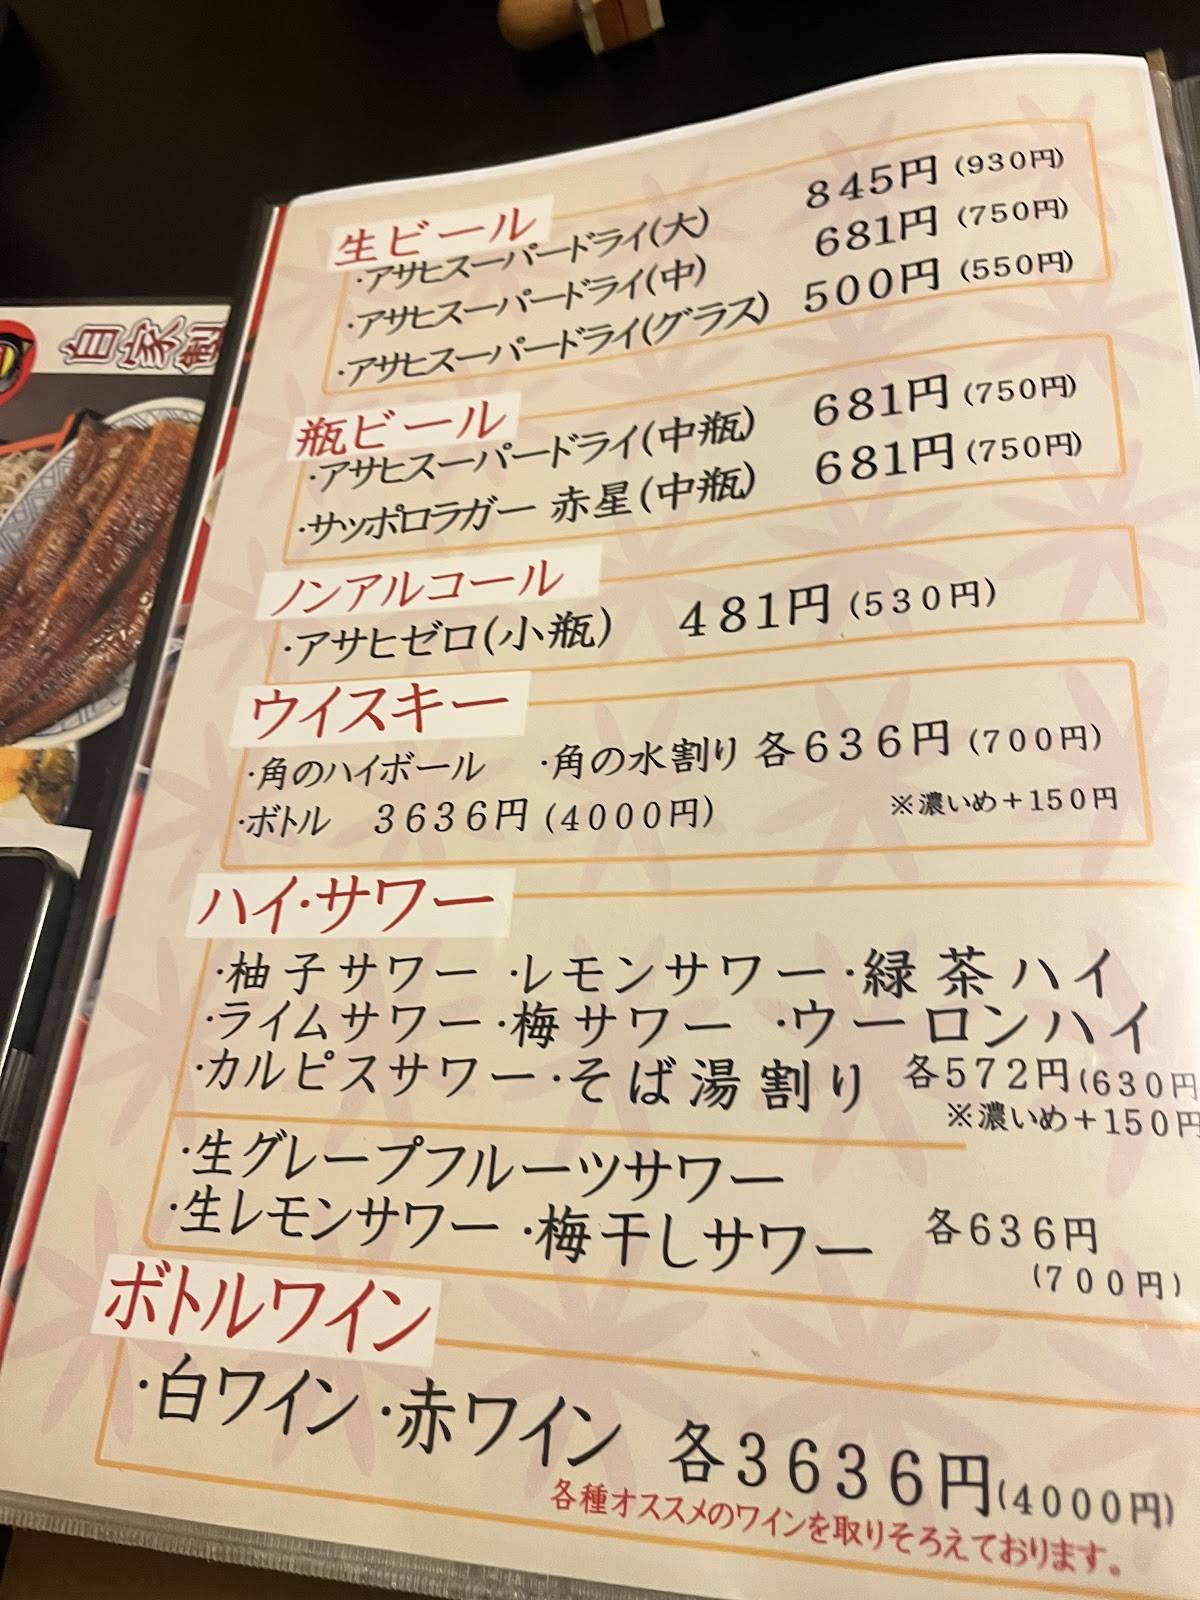 自家製
生ビール
・アサヒスーパードライ(大) 845円(930円)
・アサヒスーパードライ(中) 681円(750円)
・アサヒスーパードライ(グラス) 500円(550円)
瓶ビール
・アサヒスーパードライ(中瓶) 681円(750円)
・サッポロラガー 赤星(中瓶) 681円(750円)
ノンアルコール
・アサヒゼロ(小瓶) 481円(530円)
ウイスキー
・角のハイボール ・角の水割り 各636円(700円)
・ボトル 3636円(4000円) ※濃いめ+150円
ハイ・サワー
・柚子サワー ・レモンサワー ・緑茶ハイ
・ライムサワー ・梅サワー ・ウーロンハイ
・カルピスサワー ・そば湯割り 各572円(630円
※濃いめ+150円
・生グレープフルーツサワー
・生レモンサワー ・梅干しサワー 各636円
(700円)
ボトルワイン
・白ワイン ・赤ワイン 各3636円(4000円)
各種オススメのワインを取りそろえております。